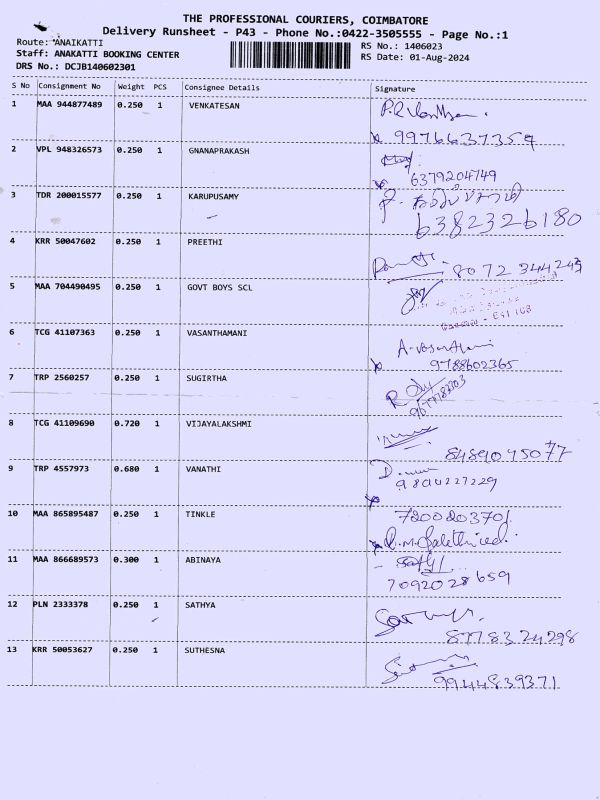 THE PROFESSIONAL COURIERS, COIMBATORE
Delivery Runsheet - P43 - Phone No.:0422-3505555 - Page No.:1
Route: ANAIKATTI RS No.: 1406023
Staff: ANAKATTI BOOKING CENTER RS Date: 01-Aug-2024
DRS No.: DCJB140602301
S No Consignment No Weight PCS Consignee Details Signature
1 MAA 944877489 0.250 1 VENKATESAN
9976637359
2 VPL 948326573 0.250 1 GNANAPRAKASH
6379204749
3 TDR 200015577 0.250 1 KARUPUSAMY
6382326180
4 KRR 50047602 0.250 1 PREETHI
8072 344245
5 MAA 704490495 0.250 1 GOVT BOYS SCL
6 TCG 41107363 0.250 1 VASANTHAMANI
A-vasanthamani
9788602365
7 TRP 2560257 0.250 1 SUGIRTHA
8 TCG 41109690 0.720 1 VIJAYALAKSHMI
8489045077
9 TRP 4557973 0.680 1 VANATHI
10 MAA 865895487 0.250 1 TINKLE
11 MAA 866689573 0.300 1 ABINAYA
7092028659
12 PLN 2333378 0.250 1 SATHYA
8778324298
13 KRR 50053627 0.250 1 SUTHESNA
9944839371